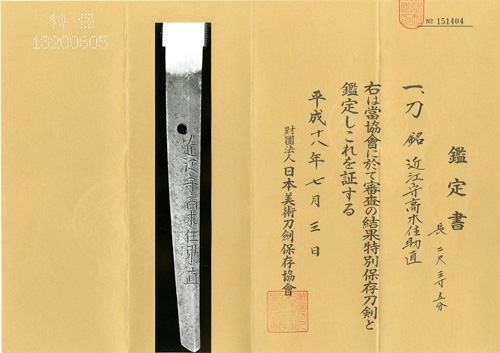 № 151404
鑑定書
一、刀 銘 近江守高木住助直
長 二尺三寸五分
右は當協會に於て審査の結果特別保存刀剣と
鑑定しこれを証する
平成十八年七月三日
財團法人 日本美術刀剣保存協會
近江守高木住助直
特保
18200605